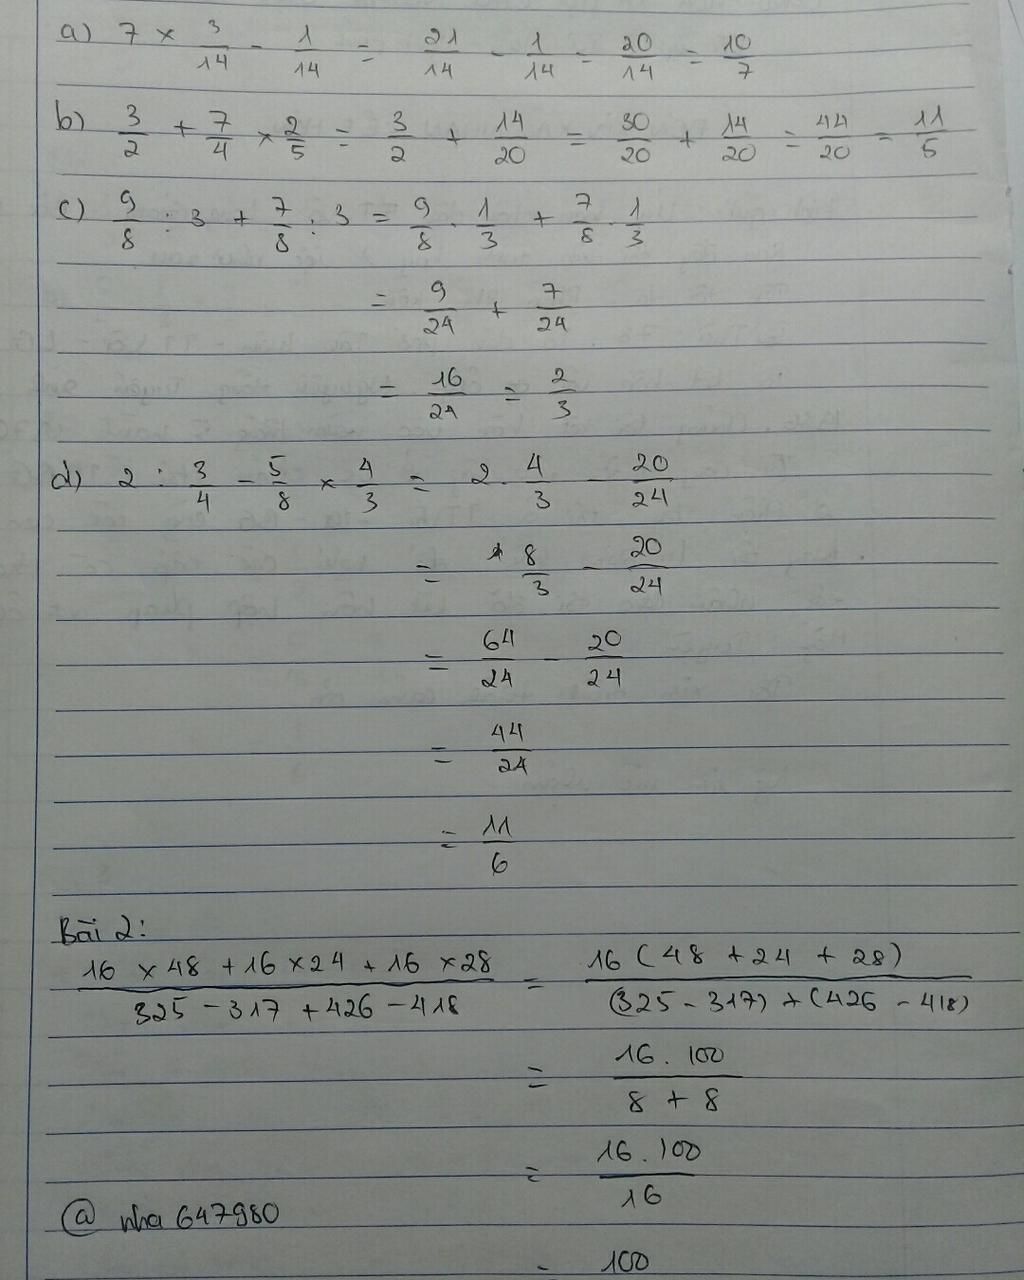 a) 7 × 3/14 - 1/14 = 21/14 - 1/14 = 20/14 = 10/7
b) 3/2 + 7/4 × 2/5 = 3/2 + 14/20 = 30/20 + 14/20 = 44/20 = 11/5
c) 9/8 : 3 + 7/8 : 3 = 9/8 . 1/3 + 7/8 . 1/3
= 9/24 + 7/24
= 16/24 = 2/3
d) 2 : 3/4 - 5/8 × 4/3 = 2 . 4/3 - 20/24
= 8/3 - 20/24
= 64/24 - 20/24
= 44/24
= 11/6
Bài 2:
16 × 48 + 16 × 24 + 16 × 28 / 325 - 317 + 426 - 418 = 16 ( 48 + 24 + 28 ) / (325 - 317) + (426 - 418)
= 16 . 100 / 8 + 8
= 16 . 100 / 16
@ nha 647980
= 100